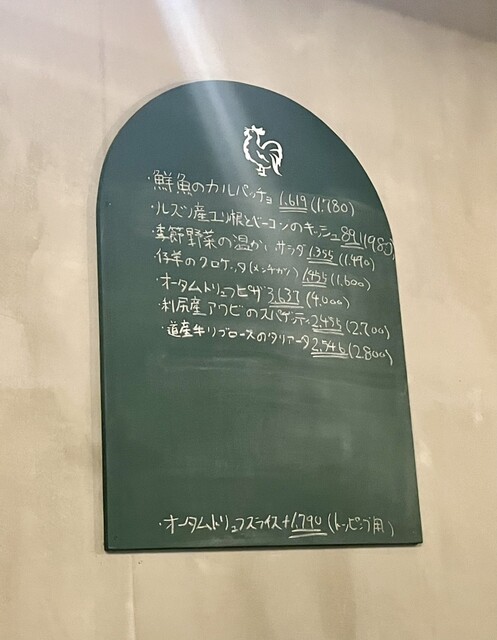 ・鮮魚のカルパッチョ 1.619(1.780)
・ルスツ産ユリ根とベーコンのキッシュ 891(980)
・季節野菜の温かいサラダ 1.355(1.490)
・仔羊のクロケッタ(メンチカツ) 1.455(1.600)
・オータムトリュフピザ 3.637(4.000)
・利尻産アワビのスパゲッティ 2.455(2.700)
・道産牛リブロースのタリアータ 2.546(2.800)
・オータムトリュフスライス +1.790(トッピング用)